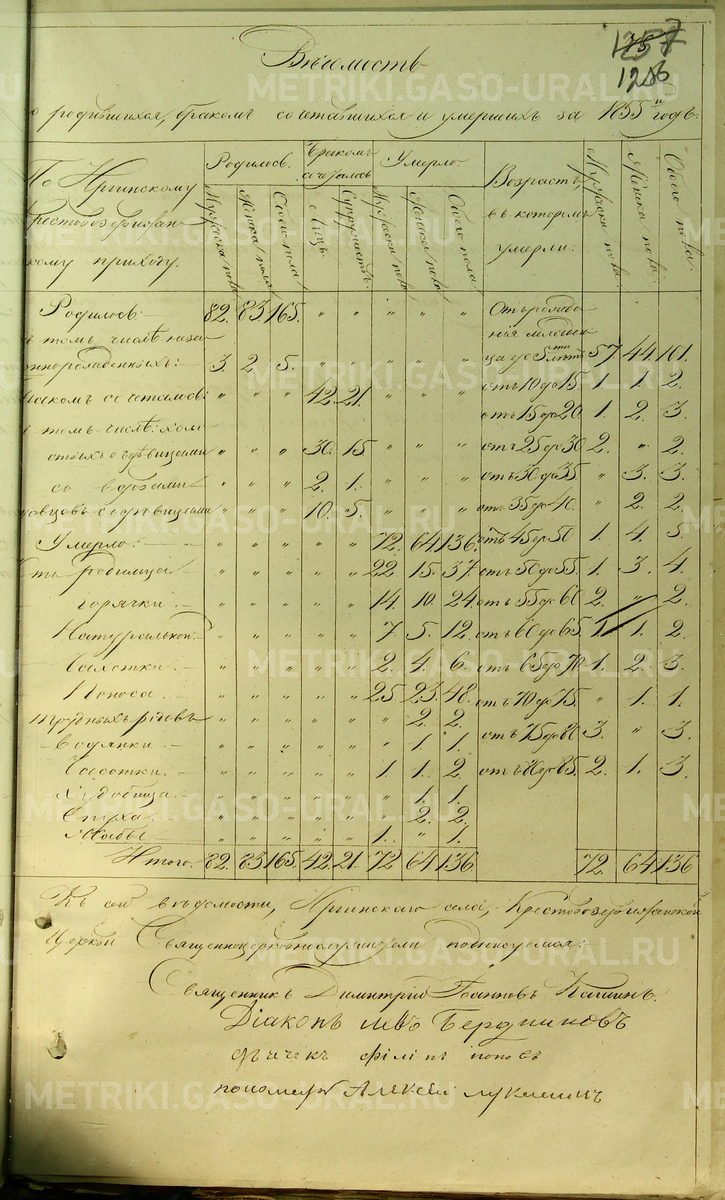 1257
1286
Вѣдомость
о родившихся, бракомъ сочетавшихся и умершихъ за 1855й годъ.
По Иргинскому Крестовоздвижен скому приходу. Родилось. Бракомъ сочеталось Умерло. Возрастъ, въ которомъ умерли. Мужеска пола. Женска пола. Обоего пола.
Мужеска пола Женска пола Обоего пола Лицъ Супружествъ Мужеска пола Женска пола Обоего пола
Родилось 82. 83. 165. " " " " " Отъ рожде
въ томъ числѣ неза нія младен
коннорожденныхъ: 3. 2. 5. " " " " " ца до 5ти лѣтъ 57. 44. 101.
Бракомъ сочеталось: 42. 21. " " " отъ 10 до 15. 1. 1. 2.
отъ 15 до 20. 1. 2. 3.
въ томъ числѣ: холо
стыхъ съ дѣвицами " " " 30. 15 " " " отъ 25 до 30 2. " 2.
отъ 30 до 35 " 3. 3.
со вдовами " " " 2. 1. " " "
вдовцовъ съ дѣвицами " " " 10. 5. " " " отъ 35 до 40. " 2. 2.
Умерло: " " " " " 72. 64. 136. отъ 45 до 50 1. 4. 5.
Отъ родимца " " " " " 22. 15. 37. отъ 50 до 55. 1. 3. 4.
горячки. " " " " " 14. 10. 24. отъ 55 до 60 2. " 2.
Натуральной. " " " " " 7. 5. 12. отъ 60 до 65. 1. 1. 2.
" " " " " 2. 4. 6. отъ 65 до 70 1. 2. 3.
Поноса. " " " " " 25. 23. 48. отъ 70 до 75. " 1. 1.
Трудныхъ родовъ " " " " " " 2. 2. отъ 75 до 80 3. " 3.
водянки. " " " " " " 1. 1.
Чахотки. " " " " " 1. 1. 2. отъ 80 до 85. 2. 1. 3.
" " " " " " 1. 1.
" " " " " " 2. 2.
Жабы " " " " " 1. " 1.
Итого. 82. 83. 165. 42. 21. 72 64 136. 72. 64 136
Къ сей вѣдомости, Иргинскаго села, Крестовоздвиженской
Церкви Священноцерковнослужители подписуемся:
Священникъ Димитрій Іоанновъ Кашинъ.
Діаконъ Левъ Бердниковъ
дьячекъ Філіпъ поповъ
пономарь Алексѣй
METRIKI.GASO-URAL.RU